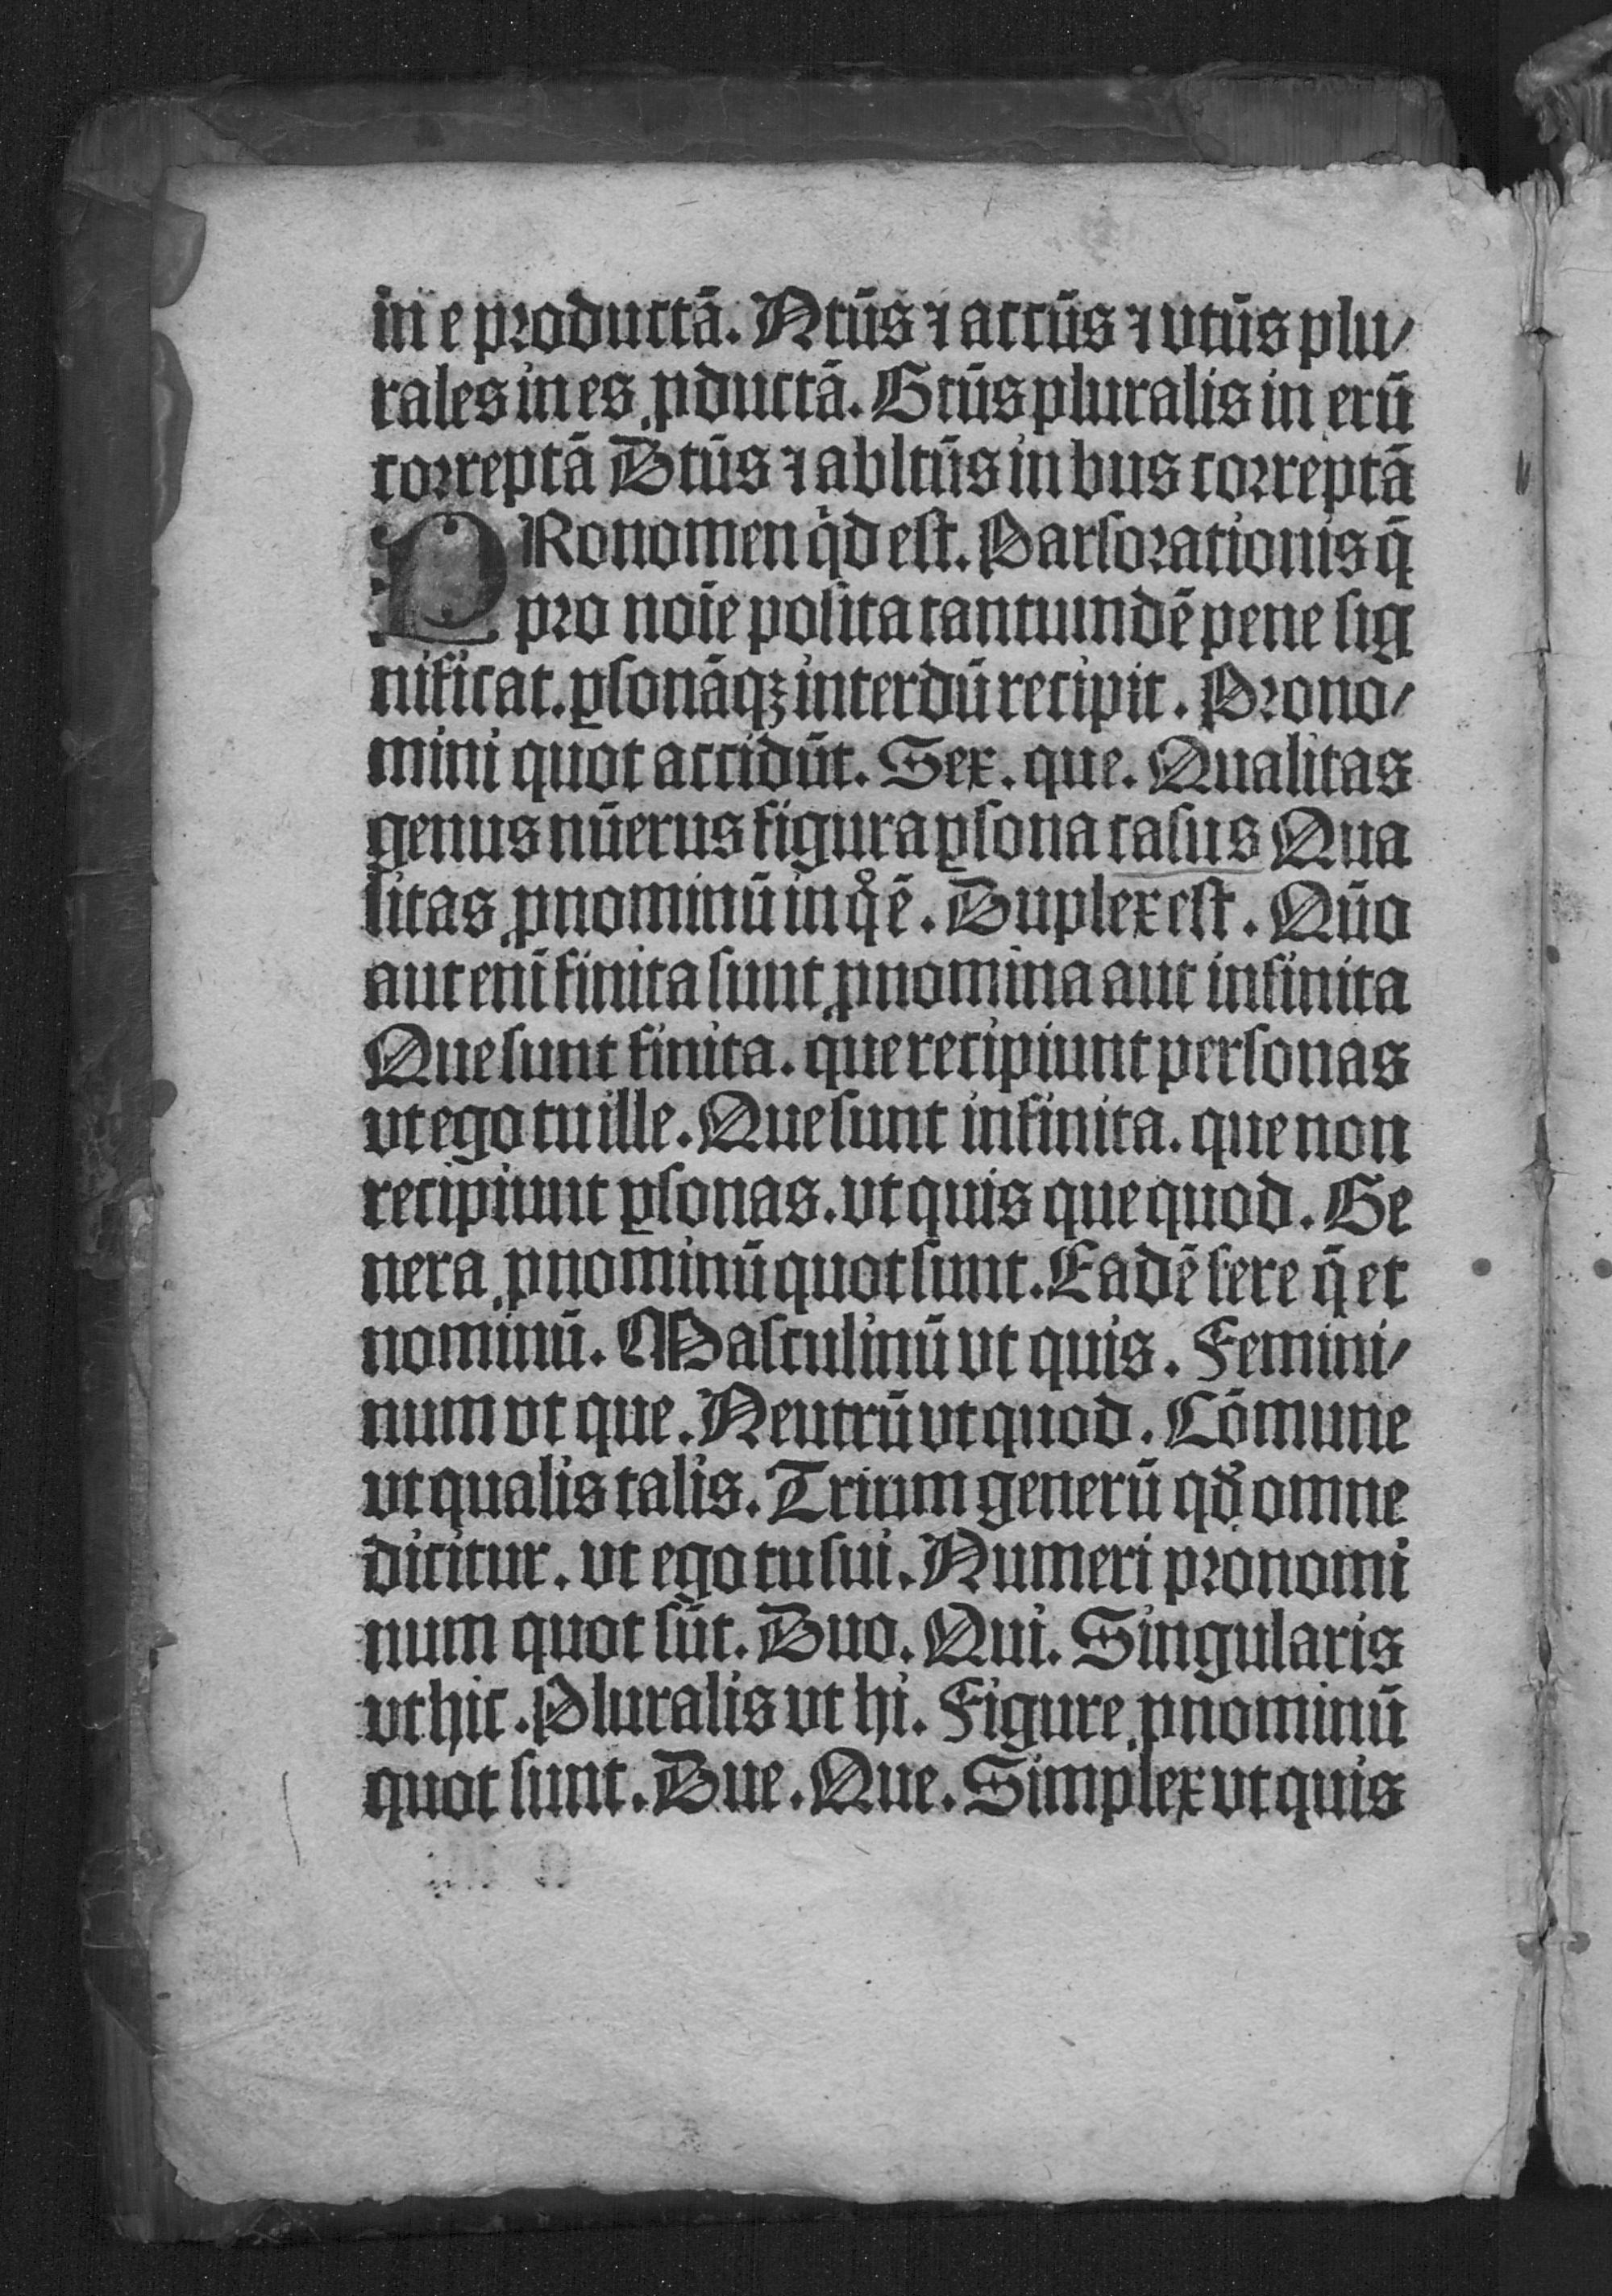 in e productā. Ntūs ⁊ actūs ⁊ vtūs plu/
rales in es ꝓductā. Gtūs pluralis in erū
correptā Dtūs ⁊ abltūs in bus correptā
PRonomen qͥd est. Pars orationis q̄
pro noīe posita tantumdē pene sig
nificat. ꝑsonāqꝫ interdū recipit. Prono/
mini quot accidūt. Sex. que. Qualitas
genus nūerus figura ꝑsona casus Qua
litas ꝓnominū in qͦ ē. Duplex est. Quō
aut enī finita sunt ꝓnomina aut infinita
Que sunt finita. que recipiunt personas
vt ego tu ille. Que sunt infinita. que non
recipiunt ꝑsonas. vt quis que quod. Ge
nera ꝓnominū quot sunt. Eadē fere q̄ et
nominū. Masculinū vt quis. Femini/
num vt que. Neutrū vt quod. Cōmune
vt qualis talis. Trium generū qđ omne
dicitur. vt ego tu sui. Numeri pronomi
num quot sūt. Duo. Qui. Singularis
vt hic. Pluralis vt hi. Figure ꝓnominū
quot sunt. Due. Que. Simplex vt quis